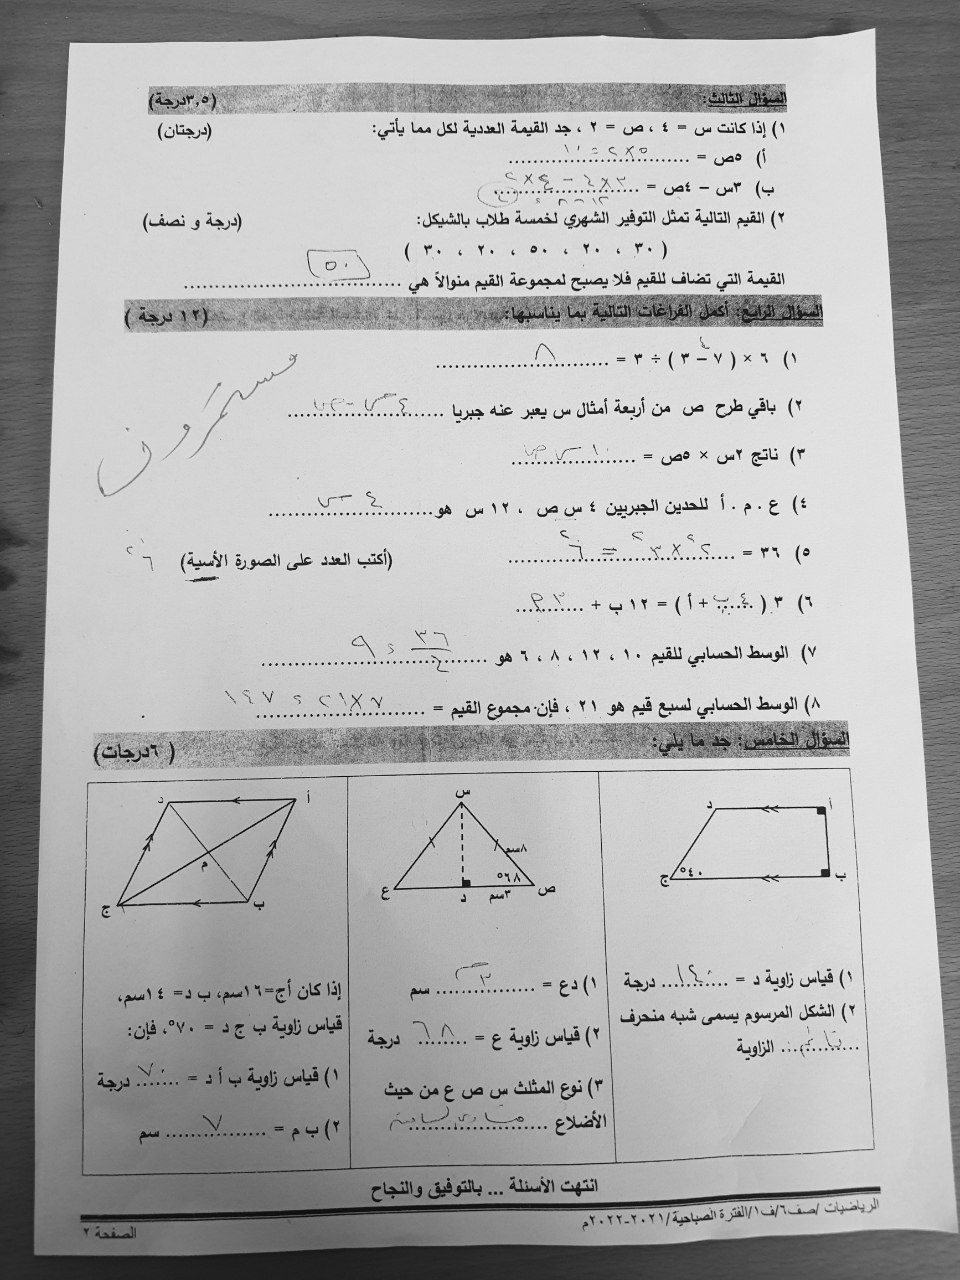 السؤال الثالث: (٣,٥درجة)
١) إذا كانت س = ٤ ، ص = ٢ ، جد القيمة العددية لكل مما يأتي: (درجتان)
أ) ٥ص = ٥×٢ = ١٠
ب) ٣س − ٤ص = ٣×٤ − ٤×٢
١٢ − ٨ = ٤
٢) القيم التالية تمثل التوفير الشهري لخمسة طلاب بالشيكل: (درجة و نصف)
( ٣٠ ، ٢٠ ، ٥٠ ، ٢٠ ، ٣٠ )
القيمة التي تضاف للقيم فلا يصبح لمجموعة القيم منوالاً هي ٥٠
السؤال الرابع: أكمل الفراغات التالية بما يناسبها: (١٢ درجة )
٤
١) ٦ × ( ٧ − ٣ ) ÷ ٣ = ٨
٢) باقي طرح ص من أربعة أمثال س يعبر عنه جبريا ٤س − ص
٣) ناتج ٢س × ٥ص = ١٠ س ص
٤) ع . م . أ للحدين الجبريين ٤ س ص ، ١٢ س هو ٤ س
٥) ٣٦ = ٢² × ٣² = ٦² (أكتب العدد على الصورة الأسية) ٦²
٦) ٣ ( ٤ب + أ ) = ١٢ ب + ٣أ
٧) الوسط الحسابي للقيم ١٠ ، ١٢ ، ٨ ، ٦ هو ٣٦/٤ = ٩
٨) الوسط الحسابي لسبع قيم هو ٢١ ، فإن مجموع القيم = ٧×٢١ = ١٤٧
السؤال الخامس: جد ما يلي: ( ٦درجات)
أ
د
ب
ج
٤٠°
١) قياس زاوية د = ١٤٠ درجة
٢) الشكل المرسوم يسمى شبه منحرف
قائم الزاوية
س
ع
د
ص
٨سم
٦٨°
٣سم
١) دع = ٣ سم
٢) قياس زاوية ع = ٦٨ درجة
٣) نوع المثلث س ص ع من حيث
الأضلاع
أ
د
م
ب
ج
إذا كان أج=١٦سم، ب د= ١٤سم،
قياس زاوية ب ج د = ٧٠°، فإن:
١) قياس زاوية ب أ د = ٧٠ درجة
٢) ب م = ٧ سم
انتهت الأسئلة ... بالتوفيق والنجاح
الرياضيات /صف٦/ف١/الفترة الصباحية/٢٠٢١-٢٠٢٢م
الصفحة ٢